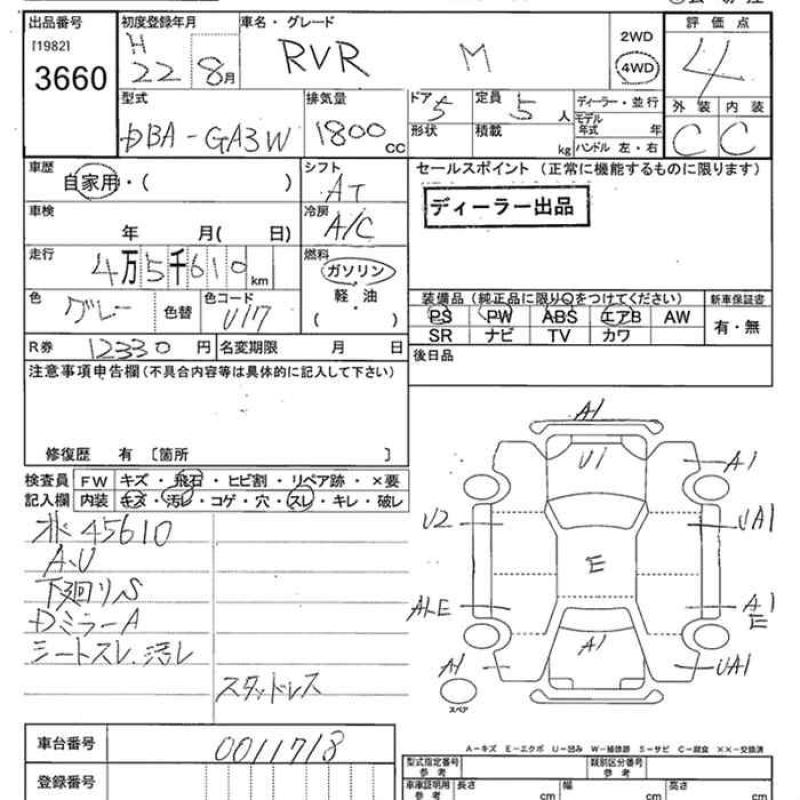 出品番号 初度登録年月 車名・グレード 評価点
[1982] H RVR M 2WD 4
3660 22 8月 4WD
型式 排気量 ドア 5 定員 5人 ディーラー・並行 外装 内装
DBA-GA3W 1800cc 形状 積載 kg モデル年式 年 C C
ハンドル 左・右
車歴 シフト セールスポイント (正常に機能するものに限ります)
自家用・( ) AT ディーラー出品
車検 冷房
年 月( 日) A/C
走行 燃料
4万5千610km ガソリン・軽油
( )
色 グレー 色替 色コード U17
装備品(純正品に限り○をつけてください) 新車保証書
PS PW ABS エアB AW 有・無
SR ナビ TV カワ
R券 12330円 名変期限 月 日 後日品
注意事項申告欄(不具合内容等は具体的に記入して下さい)
修復歴 有 〔箇所 〕
検査員 FW キズ・飛石・ヒビ割・リペア跡・×要
記入欄 内装 キズ・汚レ・コゲ・穴・スレ・キレ・破レ
45610
A、U
下廻りS
Dミラー A
シートスレ、汚レ
スタッドレス
A1
U1 A1
U2 UA1
E
ALE A1
E
A1 A1 UA1
スペア
A-キズ E-エクボ U-凹み W-補修跡 S-サビ C-腐食 ××-交換済
車台番号 0011718
登録番号
型式指定番号 参考 類別区分番号 参考
車庫証明用 参考 長さ cm 幅 cm 高さ cm